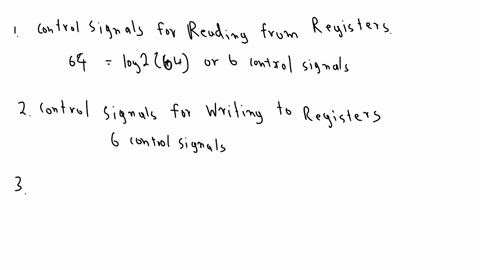 1. control signals for Reading from Registers.
64 = log2(64) or 6 control signals
2. control signals for writing to Registers
6 control signals
3.